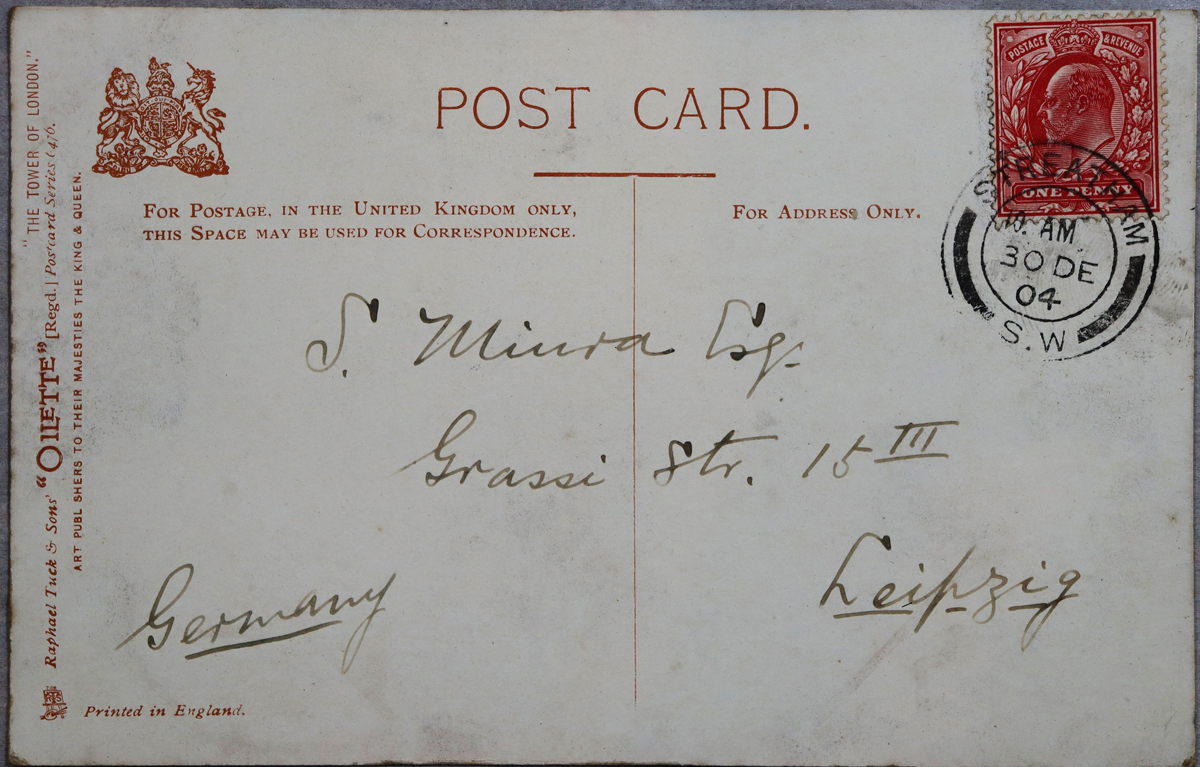 POST CARD.
FOR POSTAGE, IN THE UNITED KINGDOM ONLY,
THIS SPACE MAY BE USED FOR CORRESPONDENCE.
FOR ADDRESS ONLY.
POSTAGE & REVENUE
ONE PENNY
STREATHAM
10. AM
30 DE
04
S.W
S. Miura Esq.
Grassi Str. 15 III
Leipzig
Germany
"THE TOWER OF LONDON."
Raphael Tuck & Sons' "OILETTE" [Regd.] Postcard Series 6476.
ART PUBLISHERS TO THEIR MAJESTIES THE KING & QUEEN.
Printed in England.